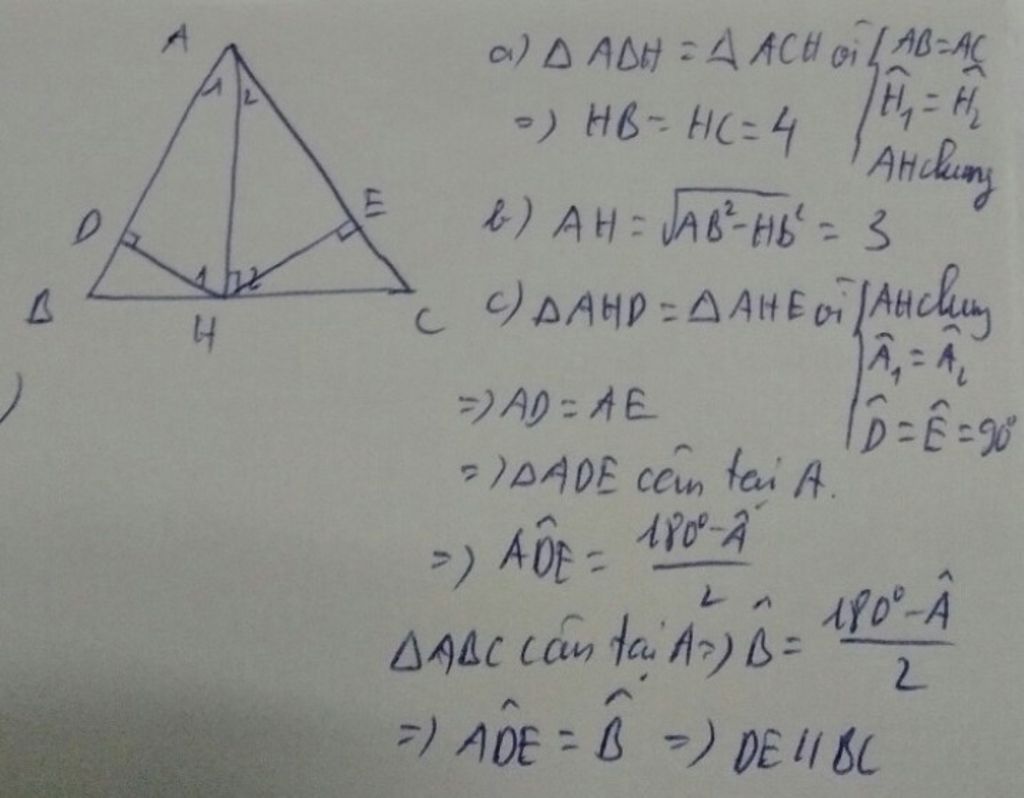 A
1 2
D
E
1 2
B
H
C
)
a) Δ ABH = Δ ACH vì { AB = AC
Ĥ₁ = Ĥ₂
=) HB = HC = 4
AH chung
b) AH = √AB² - Hb² = 3
c) Δ AHD = Δ AHE vì { AH chung
Â₁ = Â₂
=) AD = AE
D̂ = Ê = 90°
=) Δ ADE cân tại A.
=) AD̂E = (180° - Â) / 2
Δ ABC cân tại A =) B̂ = (180° - Â) / 2
=) AD̂E = B̂ =) DE // BC